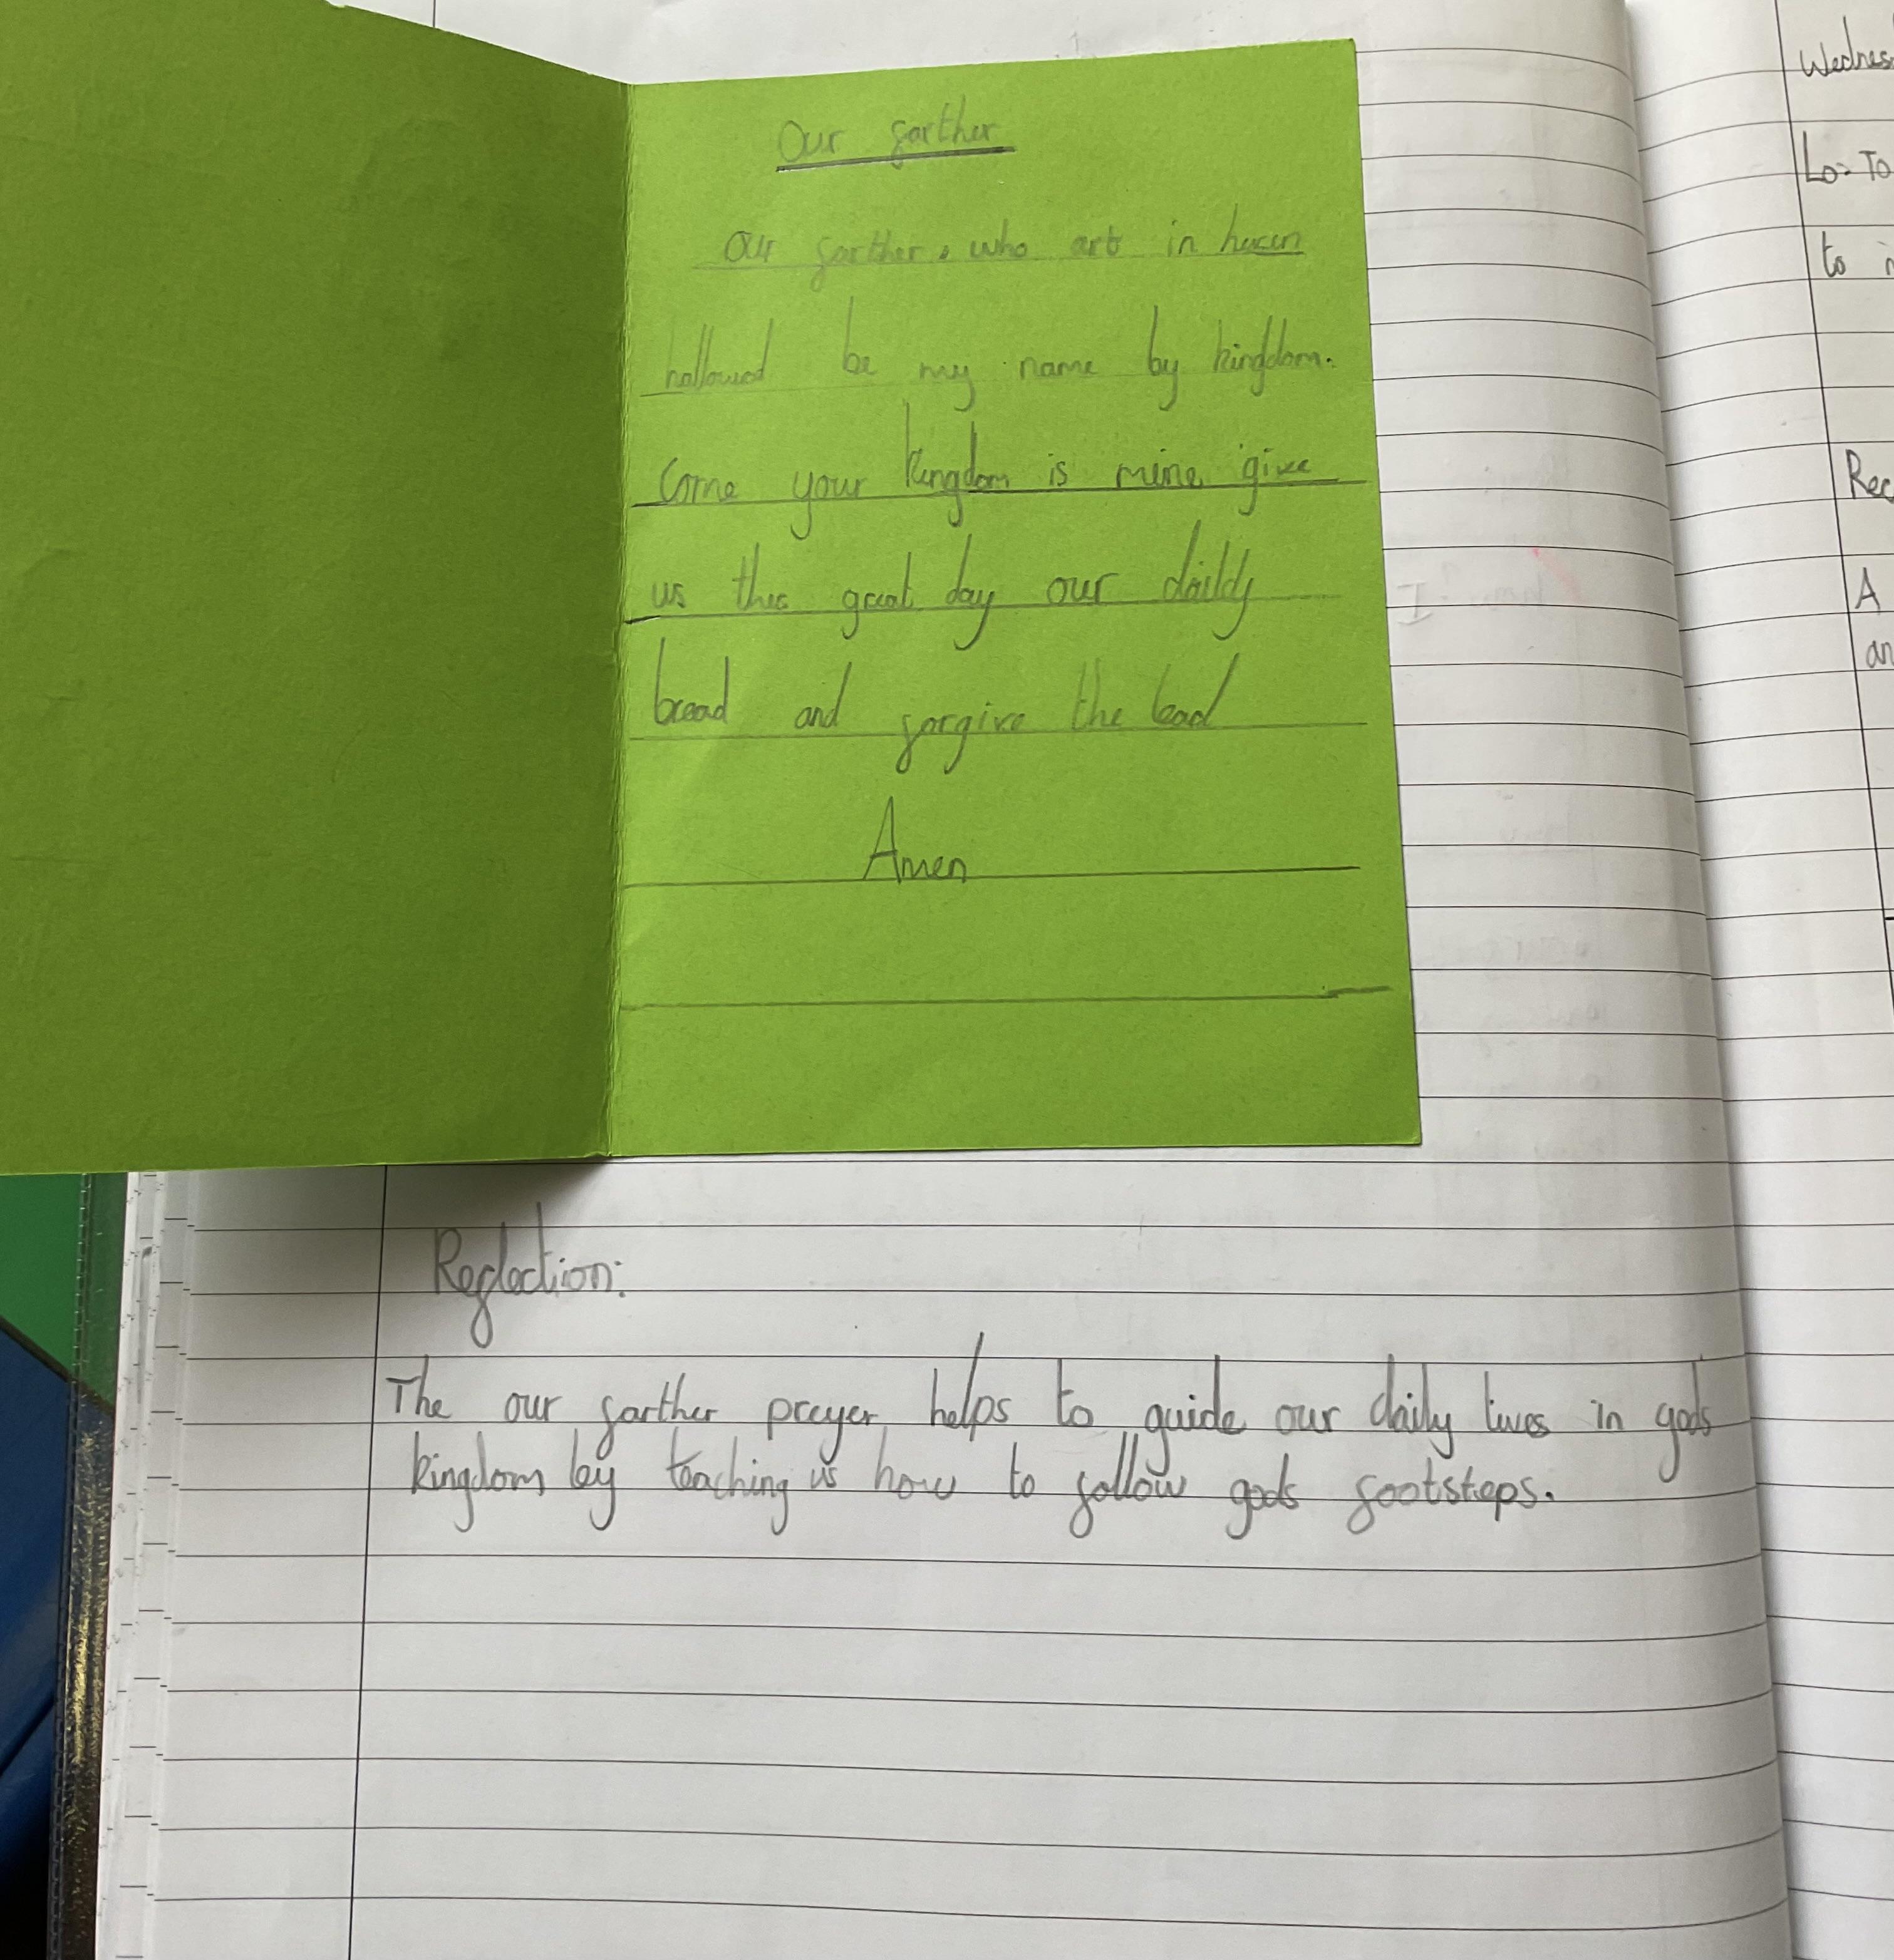 Our farther
Our farther, who art in heven
hallowed be my name by kingddom.
Come your kingdom is mine give
us this great day our daildy
bread and forgive the bad
Amen
Reflection:
The our farther preyer helps to guide our daily lives in gods
kingdom by teaching us how to follow gods footsteps.
Wednes
Lo: To
to
Rec
A
an